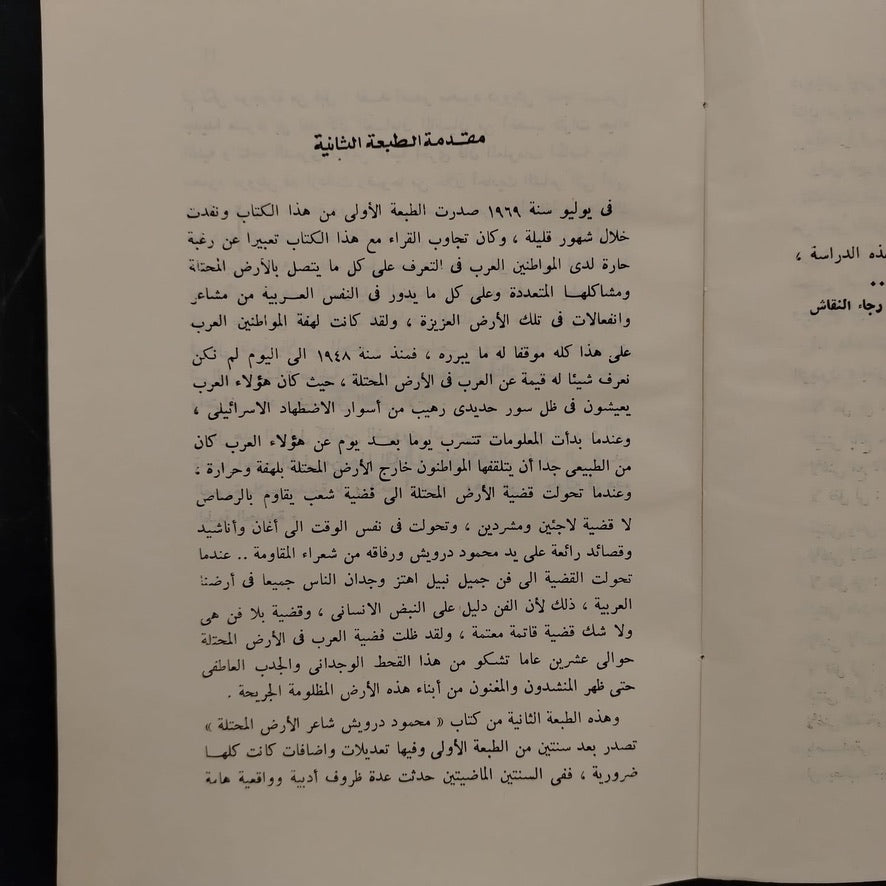 مقدمة الطبعة الثانية
فى يوليو سنة ١٩٦٩ صدرت الطبعة الأولى من هذا الكتاب ونفدت
خلال شهور قليلة ، وكان تجاوب القراء مع هذا الكتاب تعبيرا عن رغبة
حارة لدى المواطنين العرب فى التعرف على كل ما يتصل بالأرض المحتلة
ومشاكلهـا المتعددة وعلى كل ما يدور فى النفس العـربية من مشاعر
وانفعالات فى تلك الأرض العزيزة ، ولقد كانت لهفة المواطنين العرب
على هذا كله موقفا له ما يبرره ، فمنذ سنة ١٩٤٨ الى اليوم لم نكن
نعرف شيئا له قيمة عن العرب فى الأرض المحتلة ، حيث كان هؤلاء العرب
يعيشون فى ظل سور حديدى رهيب من أسوار الاضطهاد الاسرائيلى ،
وعندما بدأت المعلومات تتسرب يوما بعـد يوم عن هؤلاء العرب كان
من الطبيعى جدا أن يتلقفها المواطنون خارج الأرض المحتلة بلهفة وحرارة ،
وعندما تحولت قضية الأرض المحتلة الى قضية شعب يقاوم بالرصاص
لا قضية لاجئين ومشردين ، وتحولت فى نفس الوقت الى أغان وأناشيد
وقصائد رائعة على يد محمود درويش ورفاقه من شعراء المقاومة .. عندما
تحولت القضية الى فن جميل نبيل اهتز وجدان الناس جميعا فى أرضنا
العربية ، ذلك لأن الفن دليل على النبض الانسانى ، وقضية بلا فن هى
ولا شك قضية قاتمة معتمة ، ولقد ظلت قضية العرب فى الأرض المحتلة
حوالى عشرين عاما تشكو من هذا القحط الوجدانى والجدب العاطفى
حتى ظهر المنشدون والمغنون من أبناء هذه الأرض المظلومة الجريحة .
وهذه الطبعة الثانية من كتاب « محمود درويش شاعر الأرض المحتلة »
تصدر بعد سنتين من الطبعة الأولى وفيها تعديلات واضافات كانت كلهـا
ضرورية ، ففى السنتين الماضيتين حدثت عدة ظروف أدبية وواقعية هامة
هذه الدراسة ،
..
رجاء النقاش